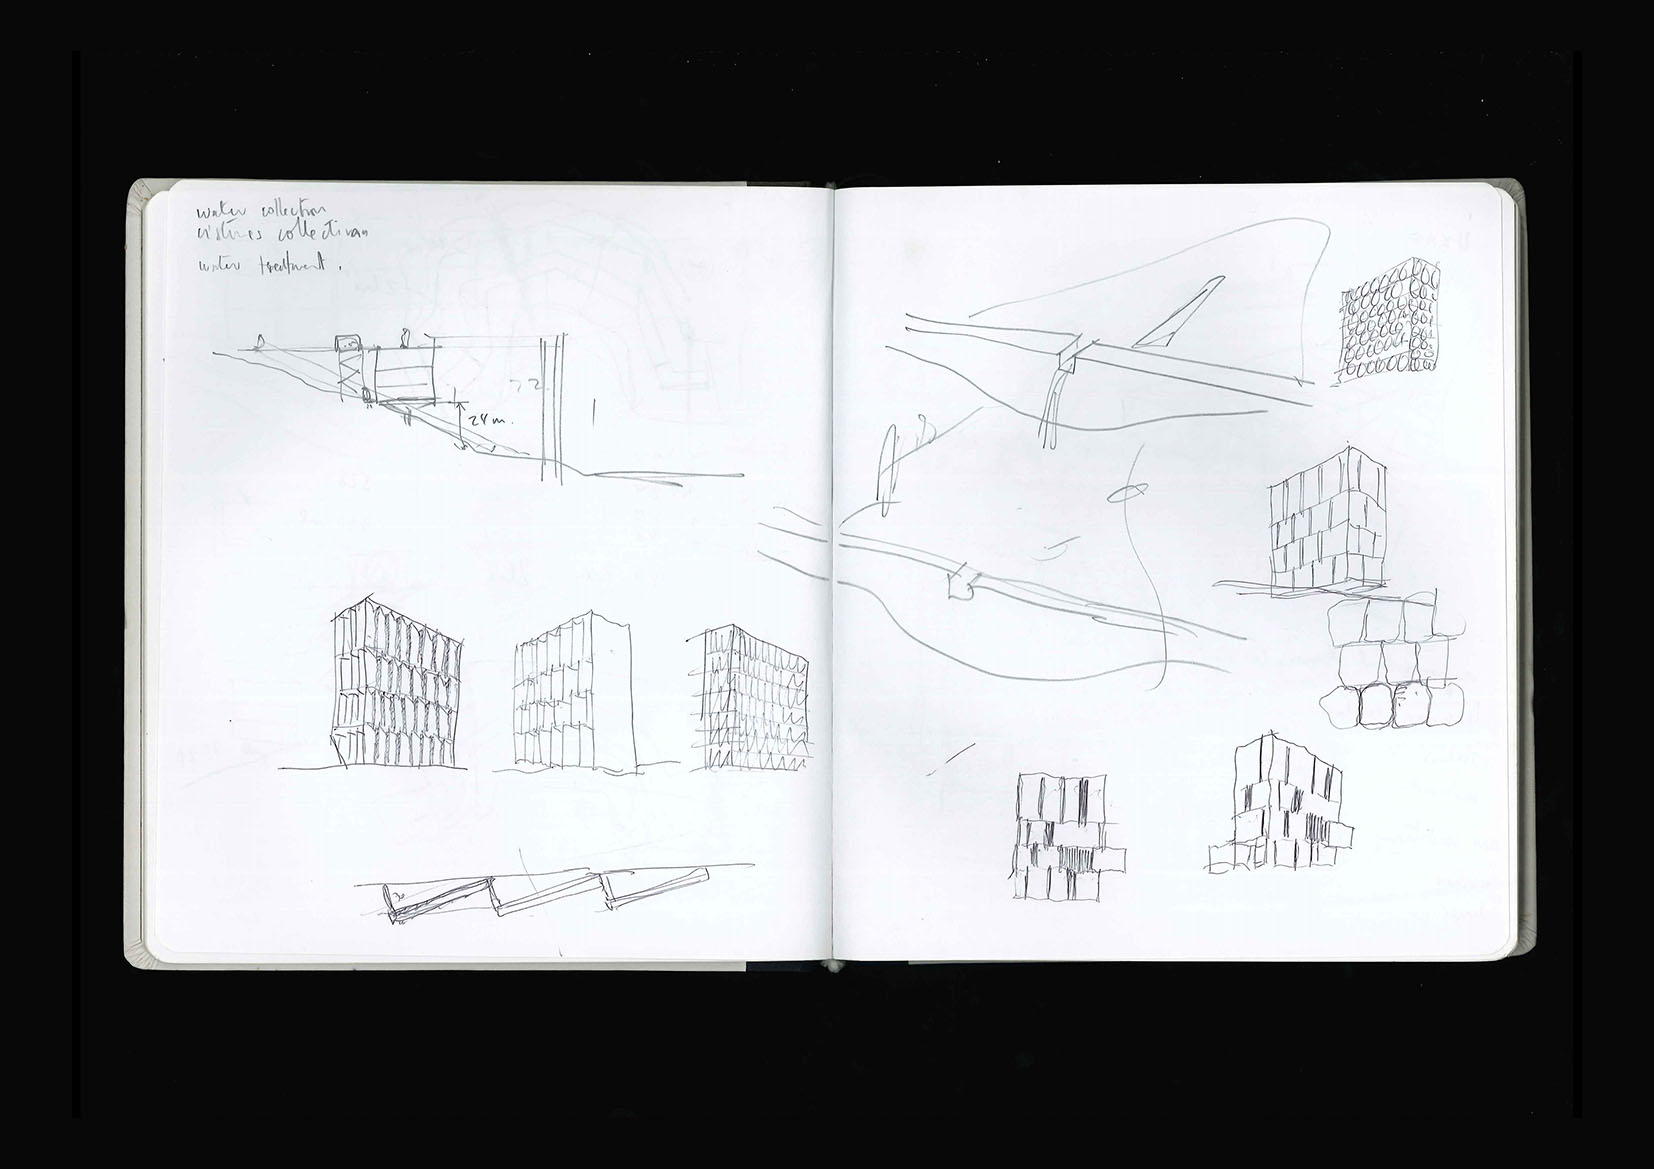 water collection
collection
water treatment.
22
24 m.